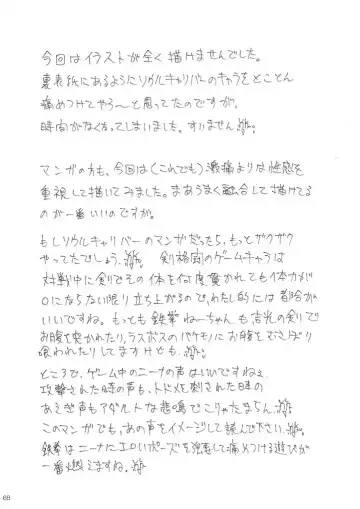 今回はイラストが全く描けませんでした。
裏表紙にあるようにソウルキャリバーのキャラをとことん
痛めつけてやろ〜と思ってたのですが、
時間がなくなってしまいました。すいません
マンガの方も、今回は(これでも)激痛よりは性感を
重視して描いてみました。まあうまく融合して描けてる
のが一番いいのですが。
もしソウルキャリバーのマンガだったら、もっとザクザク
やってたでしょう。剣格闘のゲームキャラは
対戦中に剣でその体を何度貫かれても体力が
0にならない限り立ち上がるので、わたし的には都合が
いいですね。もっとも鉄拳ねーちゃんも吉光の剣で
お腹を突かれたり、ラスボスのバケモノにお腹をむさぼり
喰われたりしてますけども。
ところで、ゲーム中のニーナの声はいいですねぇ
攻撃された時の声も、トドメを刺された時の
あえぎ声もアダルトな悲鳴でこりゃたまらん。
このマンガでも、あの声をイメージして読んで下さい。
鉄拳はニーナにエロいポーズを強要して痛めつける遊びが
一番燃えますね。
68